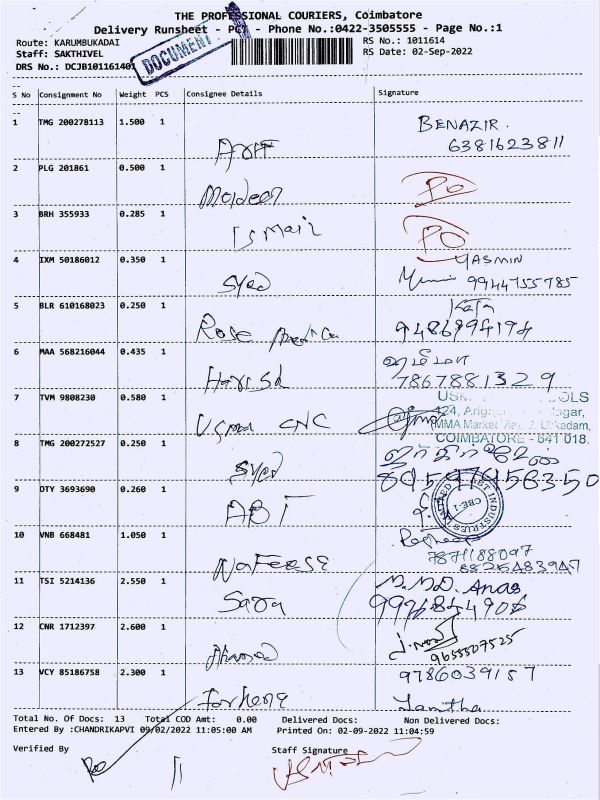 THE PROFESSIONAL COURIERS, Coimbatore
Delivery Runsheet - PCT - Phone No.:0422-3505555 - Page No.:1
Route: KARUMBUKADAI
RS No.: 1011614
Staff: SAKTHIVEL
RS Date: 02-Sep-2022
DRS No.: DCJB101161401
DOCUMENT
S No Consignment No Weight PCS Consignee Details Signature
1 TMG 200278113 1.500 1
BENAZIR.
6381623811
Ariff
2 PLG 201861 0.500 1
Moideen
PO
3 BRH 355933 0.285 1
Ismail
PO
4 IXM 50186012 0.350 1
YASMIN
Syed
9944755785
5 BLR 610168023 0.250 1
Rose
6 MAA 568216044 0.435 1
7867881329
7 TVM 9808230 0.580 1
Usman CNC
424,
MMA Market
COIMBATORE - 641 018.
8 TMG 200272527 0.250 1
Syed
9 OTY 3693690 0.260 1
ABT
ABT INDUSTRIES LIMITED
CBE-1
10 VNB 668481 1.050 1
7871188097
Nafeese
11 TSI 5214136 2.550 1
M.MD. Anas
Sara
12 CNR 1712397 2.600 1
9655507525
Ahamed
13 VCY 85186758 2.300 1
9786039157
Farhena
Total No. Of Docs: 13 Total COD Amt: 0.00 Delivered Docs: Non Delivered Docs:
Entered By :CHANDRIKAPVI 09/02/2022 11:05:00 AM Printed On: 02-09-2022 11:04:59
Verified By
Staff Signature